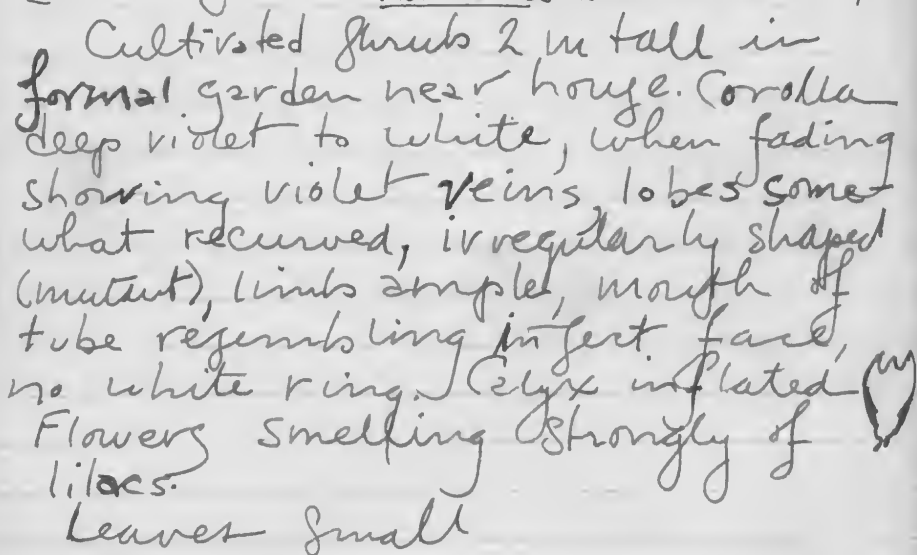 Cultivated shrub 2 m tall in
formal garden near house. Corolla
deep violet to white, when fading
showing violet veins, lobes some-
what recurved, irregularly shaped
(mutant), limb ample, mouth of
tube resembling insect face,
no white ring. Calyx inflated
Flowers smelling strongly of
lilacs.
Leaves small